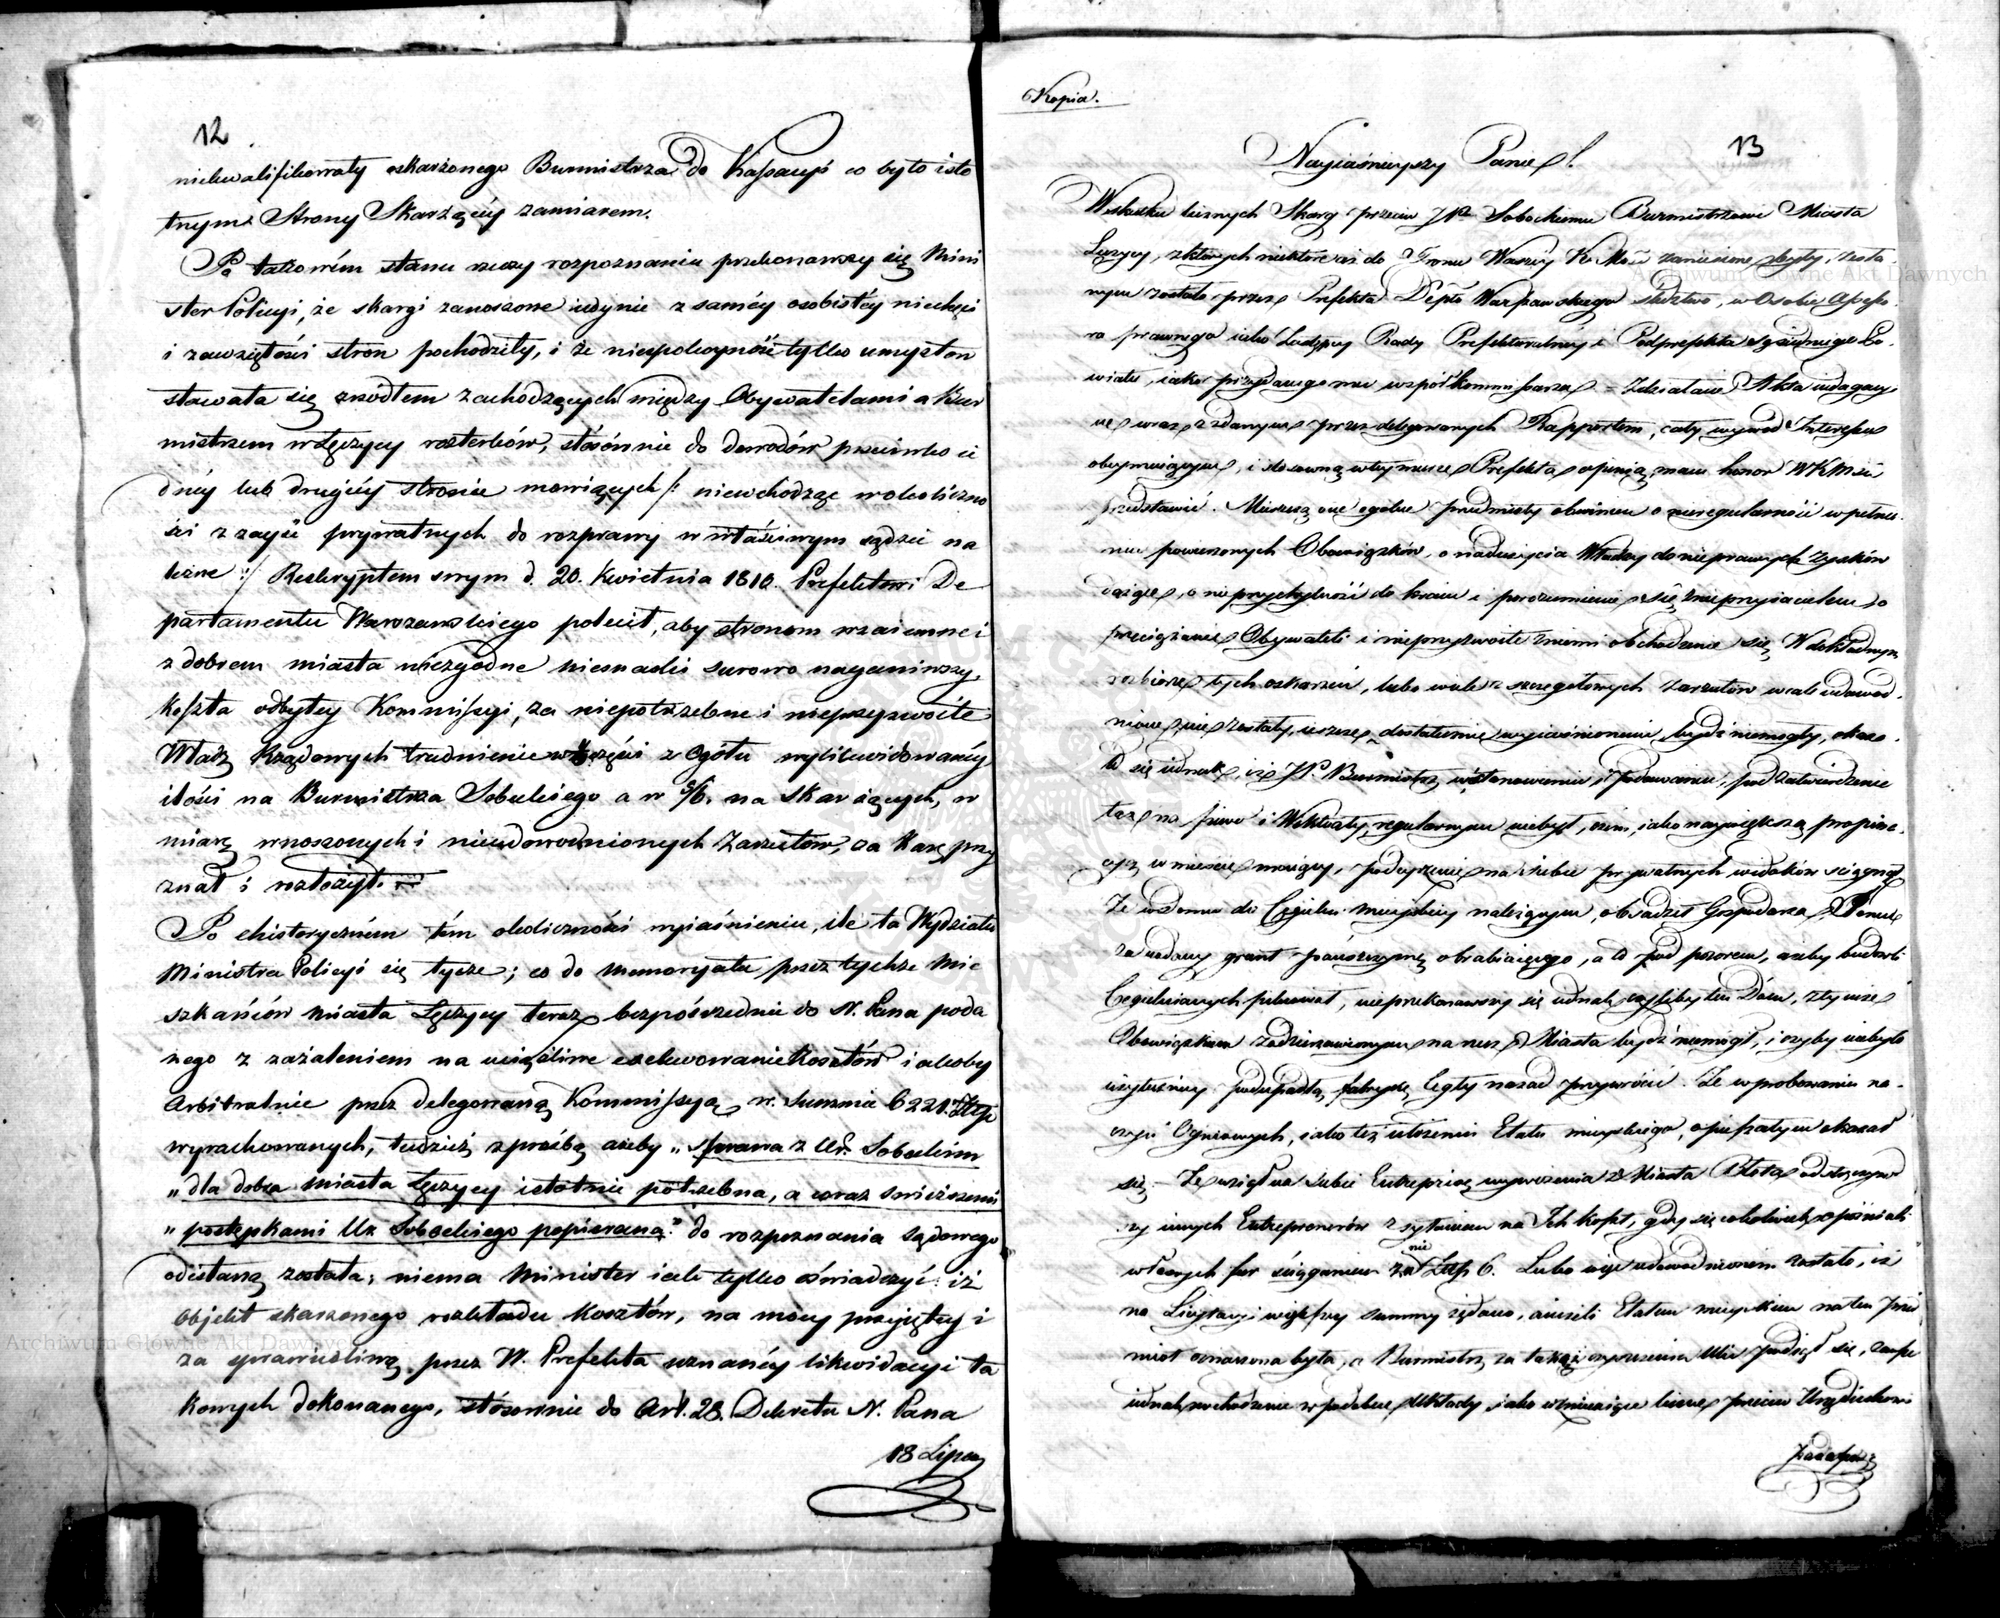 12
niekwalifikowały oskarżonego Burmistrza do Kassacyi co było isto
tnym Strony Skarżącéy zamiarem.
Po takowém stanu rzeczy rozpoznaniu przekonawszy się Mini
ster Policyi, że skargi zanoszone iedynie z saméy osobistéy niechęci
i zawziętości stron pochodziły, i że niespokoyność tylko umysłów
stawała się źródłem zachodzących między Obywatelami a Bur
mistrzem w Łęczycy rozterków, stósównie do dowodów przeciwko ie
dnéy lub drugiéy stronie mówiących /: niewchodząc w okoliczno
ści z zayść prywatnych do rozprawy w właściwym sądzie na
leżne :/ Reskryptem swym d. 20. Kwietnia 1810. Prefektowi De
partamentu Warszawskiego polecił, aby stronom wzaiemne i
z dobrem miasta niezgodne niesnaski surowo naganiwszy,
koszta odbytey Kommissyi, za niepotrzebne i nieprzyzwoite
Władz Rządowych trudnienie w części z Ogółu wylikwidowanéy
ilości na Burmistrza Sobockiego a w 5/6. na Skarżących, w
miarę wnoszonych i nieudowodnionych Zarzutów, za Karę przy
znał i rozłożył.
Po historyczném tém okoliczności wyiaśnieniu, ile ta Wydziału
Ministra Policyi się tycze; co do memoryału przez tychże Mie
szkańców Miasta Łęczycy teraz bezpośrzednie do N. Pana poda
nego z zażaleniem na uciążliwe exekwowanie Kosztów iakoby
Arbitralnie przez delegowaną Kommissyą w Summie 6221. Złtp
wyrachowanych, tudzież z prośbą ażeby „sprawa z Ur. Sobockim
„dla dobra miasta Łęczycy istotnie potrzebna, a coraz świeższemi
„postępkami Ur Sobockiego popierana" do rozpoznania sądowego
odesłaną została; niema Minister iak tylko oświadczyć: iż
Objekt skarżonego rozkładu kosztów, na mocy przyiętey i
za sprawiedliwą przez W. Prefekta uznanéy likwidacyi ta
kowych dokonanego, stósownie do Art. 28. Dekretu N. Pana
18 Lipca
Kopia.
13
Nayiaśnieyszy Panie!
Wskutku licznych Skarg przeciw JP. Sobockiemu Burmistrzowi Miasta
Łęczycy, z których niektóre aż do Tronu Waszéy K. Mci zaniesione były, zesła-
nym zostało przez Prefekta Depto Warszawskiego śledztwo, w Osobie Assesso-
ra prawnego iako Zastępcy Rady Prefekturalnéy i Podprefekta Zgierskiego Po-
wiatu, iako przydanego mu współkommissarza = Zdziałane Akta indagacy
ne wraz z zdanym przez delegowanych Rapportem, cały wywód Interessu
obeymuiącym, i stosowną w téy mierze Prefekta opinią, mam honor WKMci
przedstawić. Mieszczą one ogólne przedmioty obwinień o nieregularność w pełnie-
niu powierzonych Obowiązków, o nadużycia Władzy do nieprawych Zysków
dążące, o nieprzychylność do kraiu i porozumienie się z nieprzyiacielem, o
przeciążanie Obywateli i nieprzyzwoite z niemi obchodzenie się. W dokładnym
rozbiorze tych oskarżeń, lubo wiele z szczegółowych zarzutów wcale udowod-
nione nie zostały, i ieszcze dostatecznie wyiaśnionemi bydź niemogły, okazu-
ie się iednak, iż JP. Burmistrz w stanowieniu i podawaniu pod zatwierdzenie
tax na piwo i Wiktuały, regularnym niebył, czem, iako naywiększą propina-
cyą w mieście maiący, podeyrzenie na siebie prywatnych widoków ściągnął.
Ze w domu do Cegielni mieyskiey należącym, obsadził Gospodarza
za wydany grunt pańszczyznę obrabiaiącego, a to pod pozorem, ażeby budowli
Cegielnianych pilnował, nieprzekonawszy się iednak czyliby ten Dom, z tymże
Obowiązkiem zadzierżawionym na rzecz Miasta bydź niemógł, i czyby niebyło
użyteczniey podupadłą fabrykę Cegły nazad przywrócić. Ze w probowaniu na-
rzędzi Ogniowych, iako też ułożeniu Etatu mieyskiego, opieszałym okazał
się. Ze wziął na siebie Entrepryzę wywożenia z Miasta Błota odstręczyw
szy innych Entreprenerów z użyciem na Ich koszt, gdy się cokolwiek opóźniali
własnych fur ściąganiem za nie Złtp 6. Lubo więc udowodnionem zostało, iż
na Licytacyi większey summy żądano, aniżeli Etatem mieyskim na ten przed
miot oznaczona była, a Burmistrz za takąż czyszczenia Ulic podiął się, zawsze
iednak wchodzenie w podobne Układy, iako wzniecaiące liczne przeciw Urzędnikowi
podeyrz